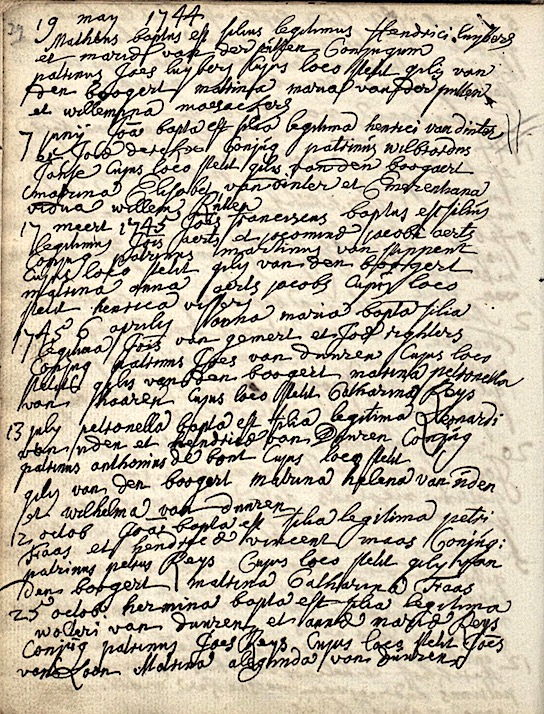 29
19 may 1744
Matheus baptus est filius legitimus Hendrici Luybers
et maria van der putten Conjugum
patrinus Joes luybers Cujus loco stetit gilis van
den boogert matrina maria van der putten
et willemyna
7 Joa bapta est filia legitima henrici van dinter
et conjug patrinus wilbrordus
Janse Cujus loco stetit gilis van den boogaert
matrina Elisabet van dinter et
vidua willem
17 meert 1745 Joes franciscus baptus est filius
legitimus Jois aerts et jacobi aerts
Conjug patrinus martinus van
Cujus loco stetit gilis van den boogert
matrina anna aerts jacobs Cujus loco
stetit henrica vissers
1745 6 aprilis Joanna maria bapta filia
legitima Jois van gemert et righters
Conjug patrinus Joes van dunren Cujus loco
stetit gilis van den boogert matrina petronella
van haaren Cujus loco stetit Catharina Reys
13 july petronella bapta est filia legitima Leonardi
van nden et hendrica van Dunren Conjug
patrinus anthonius de bont Cujus loco stetit
gilis van den boogert matrina helena van nden
et wilhelma van dunren
12 octob Joae bapta est filia legitima petri
Faas et vincent maas Conjug:
patrinus petrus Reys Cujus loco stetit gilis van
den boogert matrina Catharina Faas
25 octob hermina bapta est filia legitima
wolteri van dunren et anna maria Reys
Conjug patrinus Joes Reys Cujus loco stetit Joes
van Loon Matrina aldegunda van dunren